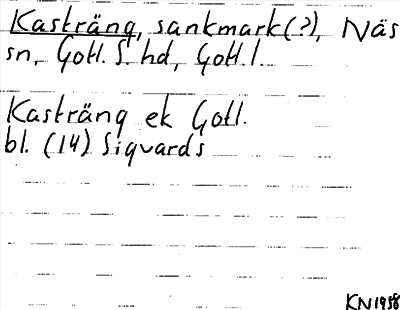 Kasträng, sankmark(?), Näs
sn, Gotl. S. hd, Gotl. l.
Kasträng ek Gotl.
bl. (14) Sigvards
KN 1958